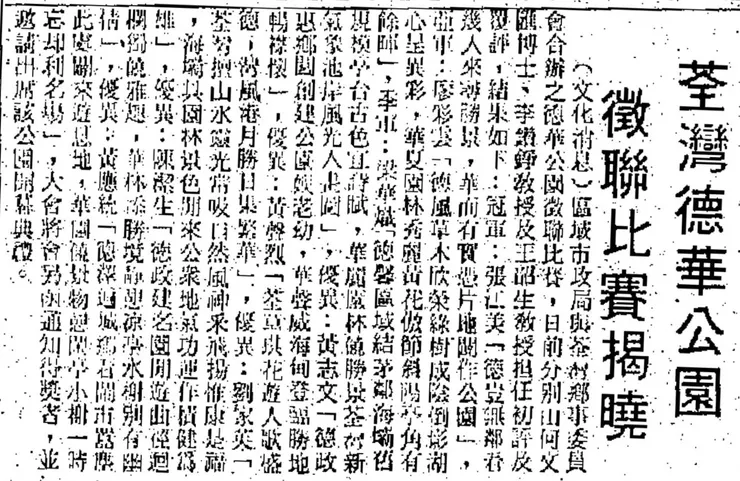 荃灣德華公園
徵聯比賽揭曉
（文化消息）區域市政局與荃灣鄉事委員
會合辦之德華公園徵聯比賽，日前分別由何文
匯博士、李鑽錚教授及王韶生教授担任初評及
覆評，結果如下：冠軍：張江美「德豈無鄰君
幾人來尋勝景，華而有實憑片地闢作公園」，
亞軍：廖彩雲「德風草木欣榮綠樹成陰倒影湖
心呈異彩，華夏園林秀麗黃花傲節斜陽亭角有
餘暉」，季軍：梁華斌「德馨區域結茅鄰海壩舊
規模亭台古色宜詩賦，華麗園林饒勝景荃灣新
氣象池岸風光入畫圖」，優異：黃志文「德政
惠鄉園創建公園娛老幼，華聲威海甸登臨勝地
暢襟懷」，優異：黃聲烈「荃草琪花遊人歌盛
德，灣風港月勝日集繁華」，優異：劉家英「
荃灣擅山水靈光常吸自然風神采飛揚惟康是福
，海壩具園林景色開來公衆地氣功運作積健為
雄」，優異：陳潔生「德政建名園閒遊曲徑迴
欄獨饒雅趣，華林添勝境靜憩涼亭水榭別有幽
情」，優異：黃應統「德澤遍城看鬧市囂塵
此處歸來遊息地，華園饒景物戀閑亭小榭一時
忘却利名場」，大會將會另函通知得獎者，並
邀請出席該公園開幕典禮。